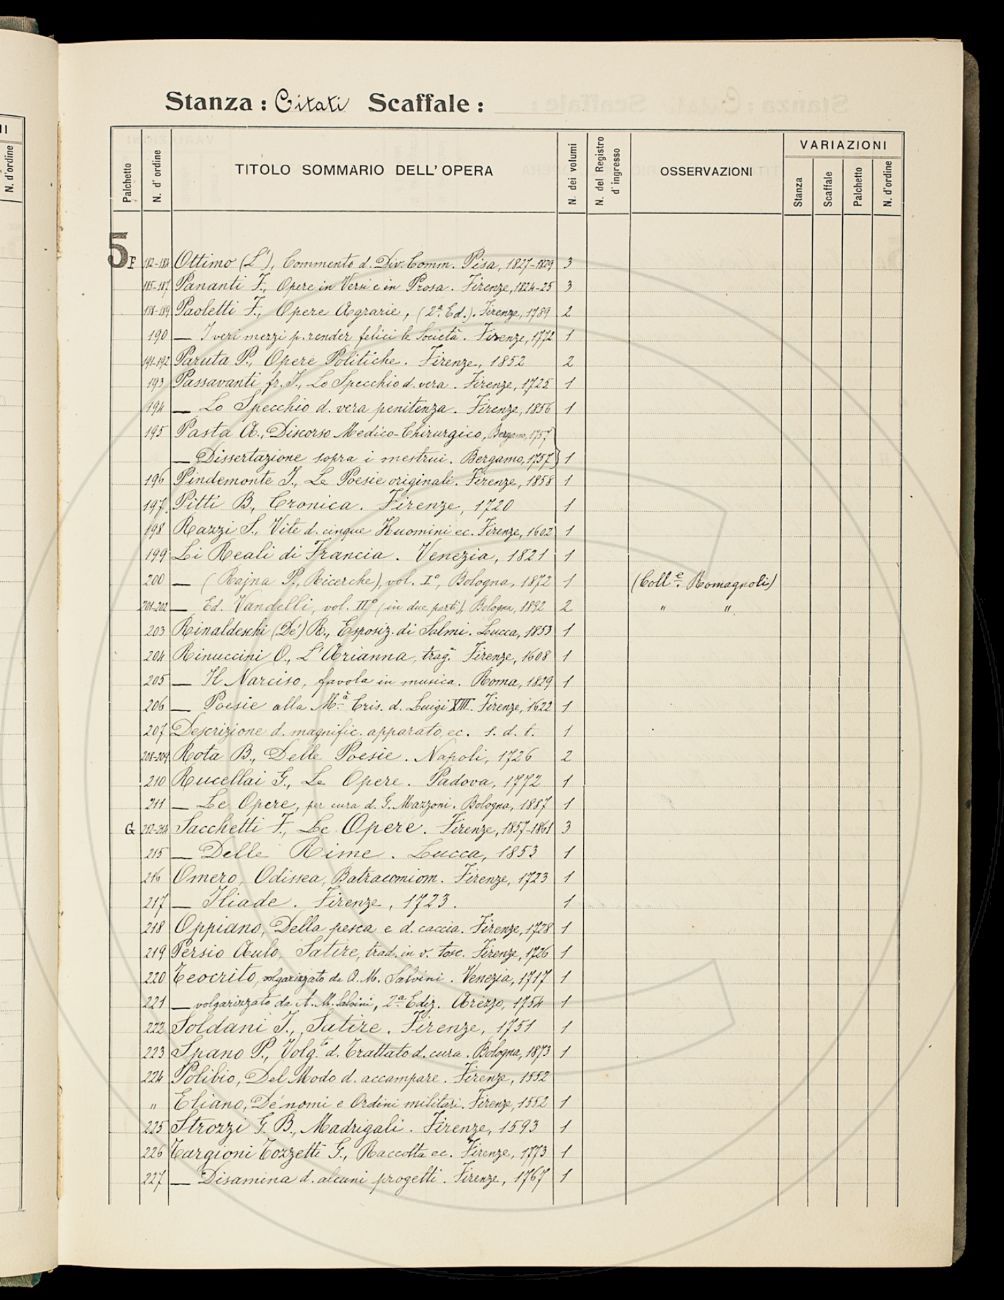 Stanza: Citati Scaffale:
Palchetto N. d'ordine TITOLO SOMMARIO DELL'OPERA N. dei volumi N. del Registro d'ingresso OSSERVAZIONI VARIAZIONI
Stanza Scaffale Palchetto N. d'ordine
5 F 182-184 Ottimo (L'), Commento d. Div. Comm. Pisa, 1827-1829 3
185-187 Pananti F., Opere in Versi e in Prosa. Firenze, 1824-25 3
188-189 Paoletti F., Opere Agrarie, (2ª Ed.). Firenze, 1789 2
190 — I veri mezzi p. render felici le Società. Firenze, 1772 1
191-192 Paruta P., Opere Politiche. Firenze, 1852 2
193 Passavanti fr. J., Lo Specchio d. vera. Firenze, 1725 1
194 — Lo Specchio d. vera penitenza. Firenze, 1856 1
195 Pasta A., Discorso Medico-Chirurgico, Bergamo, 1757
— Dissertazione sopra i mestrui. Bergamo, 1757 1
196 Pindemonte I., Le Poesie originali. Firenze, 1858 1
197 Pitti B., Cronica. Firenze, 1720 1
198 Razzi S., Vite d. cinque Huomini ec. Firenze, 1602 1
199 Li Reali di Francia. Venezia, 1821 1
200 — (Rajna P., Ricerche), vol. Iº, Bologna, 1872 1 (Coll.e Romagnoli)
201-202 — Ed. Vandelli, vol. IIº (in due parti), Bologna, 1892 2 " "
203 Rinaldeschi (De') R., Esposiz. di Salmi. Lucca, 1853 1
204 Rinuccini O., L'Arianna, trag. Firenze, 1608 1
205 — Il Narciso, favola in musica. Roma, 1829 1
206 — Poesie alla M.à Cris. d. Luigi XIII. Firenze, 1622 1
207 Descrizione d. magnific. apparato, ec. s. d. t. 1
208-209 Rota B., Delle Poesie. Napoli, 1726 2
210 Rucellai G., Le Opere. Padova, 1772 1
211 — Le Opere, per cura d. G. Mazzoni. Bologna, 1887 1
G 212-214 Sacchetti F., Le Opere. Firenze, 1857-1861 3
215 — Delle Rime. Lucca, 1853 1
216 Omero, Odissea, Batracomiom. Firenze, 1723 1
217 — Iliade. Firenze, 1723. 1
218 Oppiano, Della pesca e d. caccia. Firenze, 1728 1
219 Persio Aulo, Satire, trad. in v. tosc. Firenze, 1726 1
220 Teocrito, volgarizzato da A. M. Salvini. Venezia, 1717 1
221 — volgarizzato da A. M. Salvini, 2ª Ediz. Arezzo, 1754 1
222 Soldani J., Satire. Firenze, 1751 1
223 Spano P., Volg.to d. Trattato d. cura. Bologna, 1873 1
224 Polibio, Del Modo d. accampare. Firenze, 1552
" Eliano, De' nomi e Ordini militari. Firenze, 1552 1
225 Strozzi G. B., Madrigali. Firenze, 1593 1
226 Targioni Tozzetti G., Raccolta ec. Firenze, 1773 1
227 — Disamina d. alcuni progetti. Firenze, 1767 1